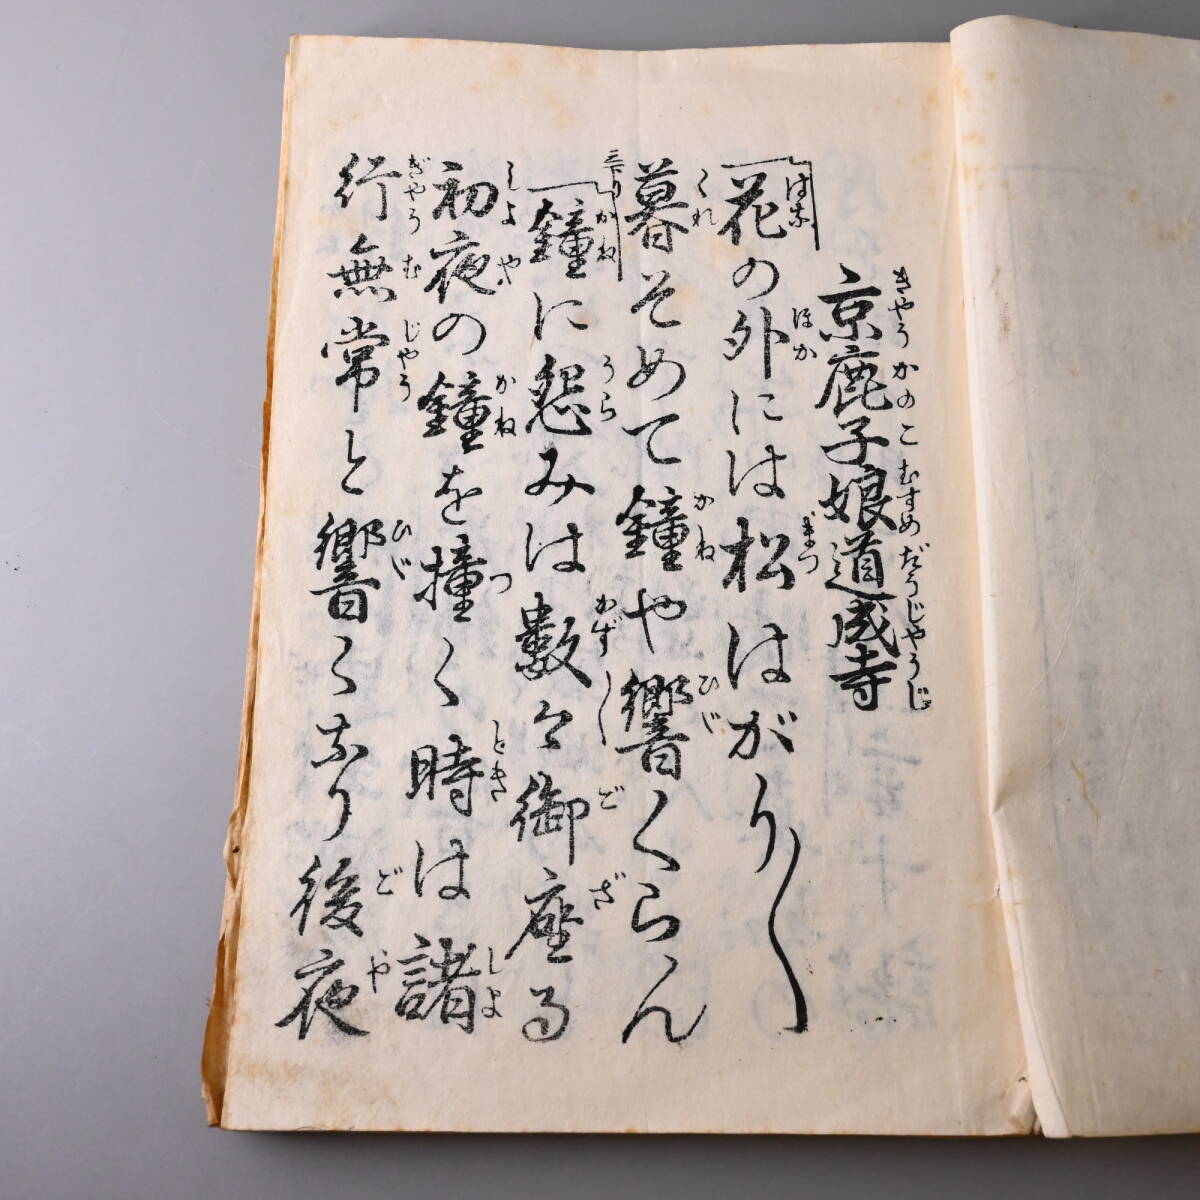 京鹿子娘道成寺
花の外には松はがり〱
暮そめて鐘や響くらん
三下り
鐘に怨みは数々御座る
初夜の鐘を撞く時は諸
行無常と響くなり後夜